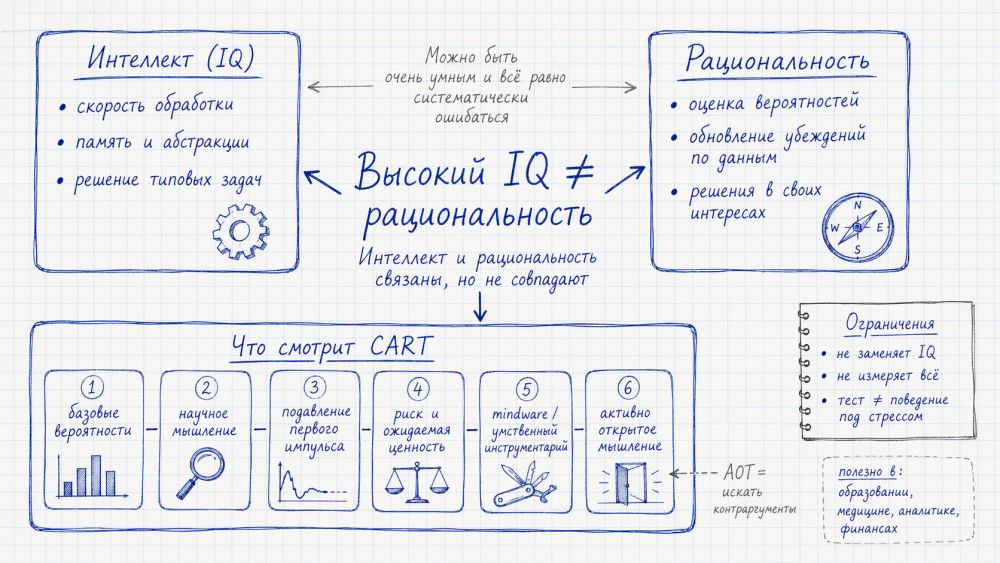 Интеллект (IQ)
• скорость обработки
• память и абстракции
• решение типовых задач
Можно быть
очень умным и всё равно
систематически
ошибаться
Высокий IQ ≠
рациональность
Интеллект и рациональность
связаны, но не совпадают
Рациональность
• оценка вероятностей
• обновление убеждений
по данным
• решения в своих
интересах
N
W E
S
Что смотрит CART
1
базовые
вероятности
2
научное
мышление
3
подавление
первого
импульса
4
риск и
ожидаемая
ценность
5
mindware /
умственный
инструментарий
6
активно
открытое
мышление
AOT =
искать
контраргументы
Ограничения
• не заменяет IQ
• не измеряет всё
• тест ≠ поведение
под стрессом
полезно в:
образовании,
медицине, аналитике,
финансах